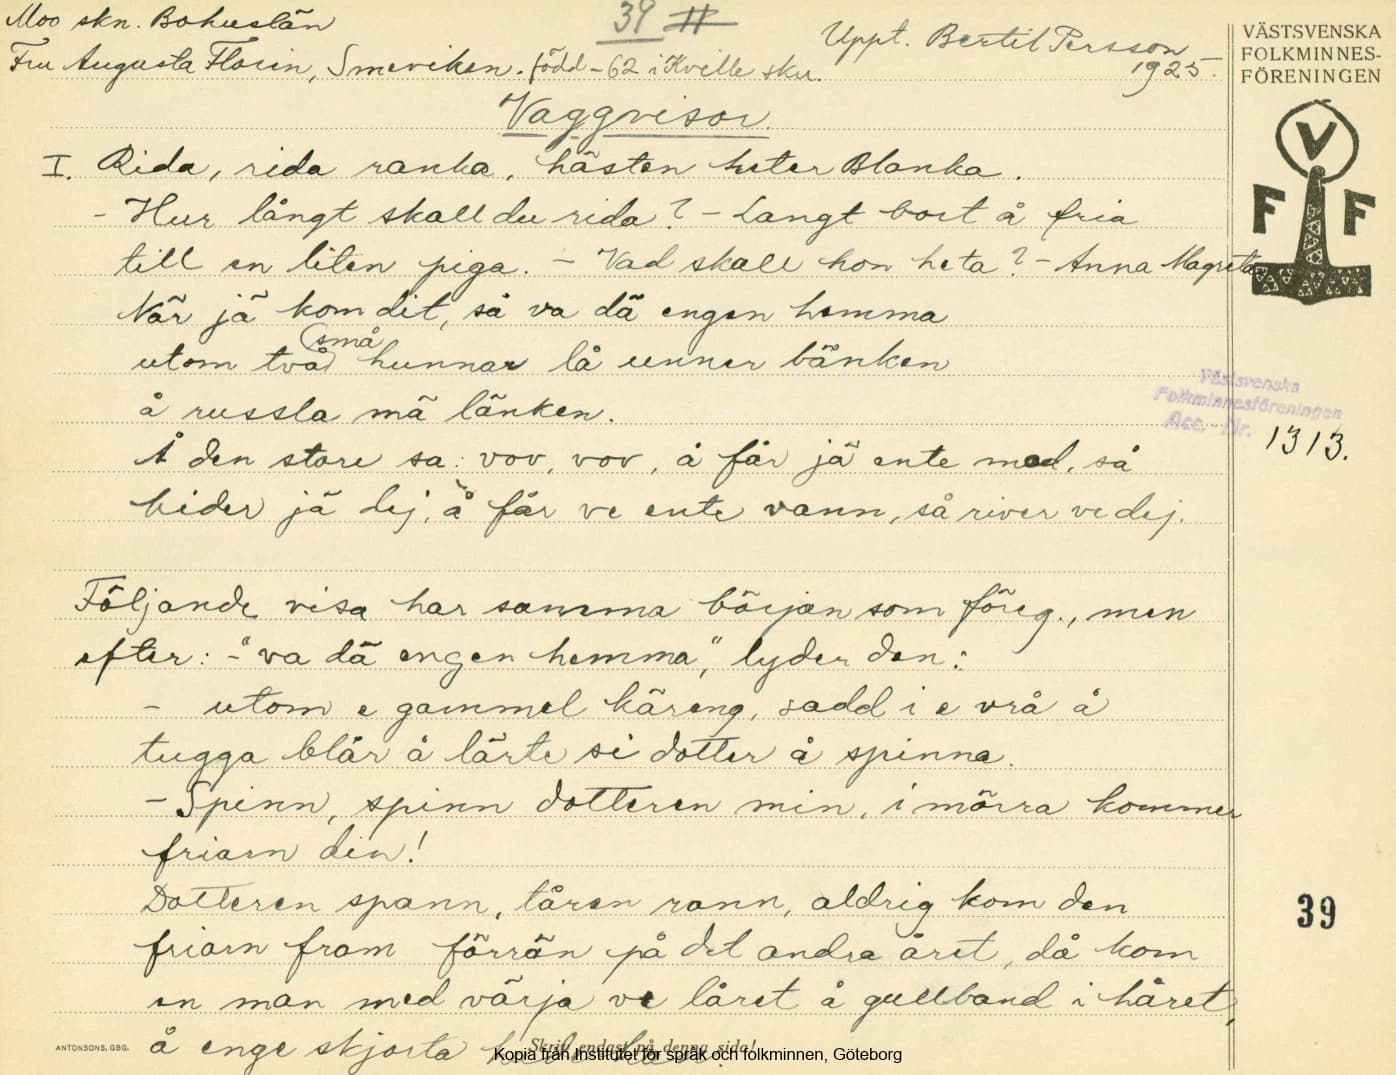 Moo skn. Bohuslän
39 II
Uppt. Bertil Persson
1925.
Fru Augusta Florin, Smeviken. född -62 i Kville skn.
VÄSTSVENSKA
FOLKMINNES-
FÖRENINGEN
Vaggvisor
I. Rida, rida ranka, hästen heter Blanka.
- Hur långt skall du rida? - Langt bort å fria
till en liten piga. - Vad skall hon heta? - Anna Magreta
När jä kom dit, så va dä engen hemma
utom två små hunnar lå unner bänken
å russla mä länken.
Å den store sa: vov, vov, å får jä ente mad, så
bider jä dej, å får ve ente vann, så river ve dej.
V
F F
Västsvenska
Folkminnesföreningen
Acc.-Nr. 1313.
Följande visa har samma början som föreg., men
efter: - "va dä engen hemma," lyder den:
- utom e gammel käreng, sadd i e vrå å
tugga blår å lärte si dotter å spinna.
- Spinn, spinn dotteren min, i mörra kommer
friarn din!
Dotteren spann, tåren rann, aldrig kom den
friarn fram förrän på det andra året, då kom
en man med värja ve låret å gullband i håret,
å enge skjorta
39
ANTONSONS, GBG.
Skriv endast på denna sida!
Kopia från Institutet för språk och folkminnen, Göteborg